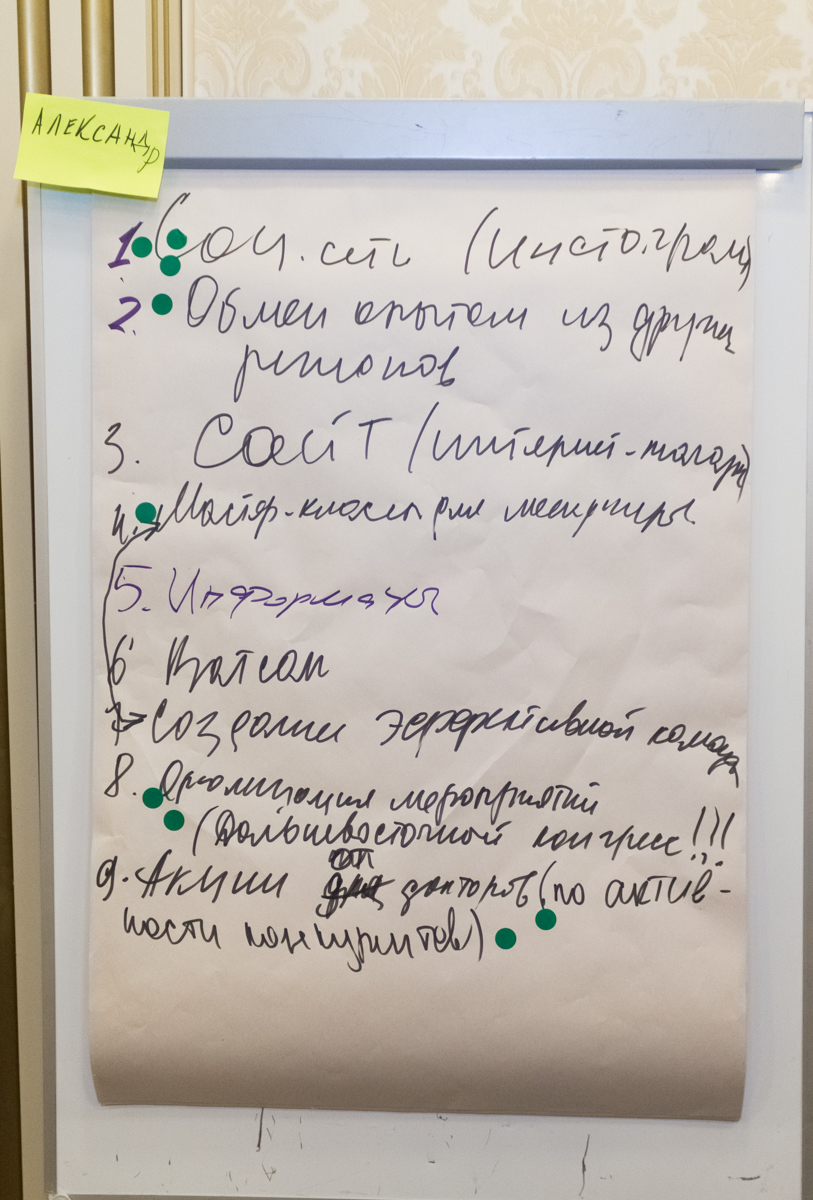 АЛЕКСАНДР
1. Соц. сеть (инстограм)
2. Обмен опытом из других
регионов
3. Сайт (интернет-магазин)
4. Мастер-классы для менеджеры
5. Информ
6 Ватсап
7 Создание эффективной команды
8. Организация мероприятий
(Дальневосточной конгресс!!!
от
9. Акции докторов (по актив-
ности конкурентов)